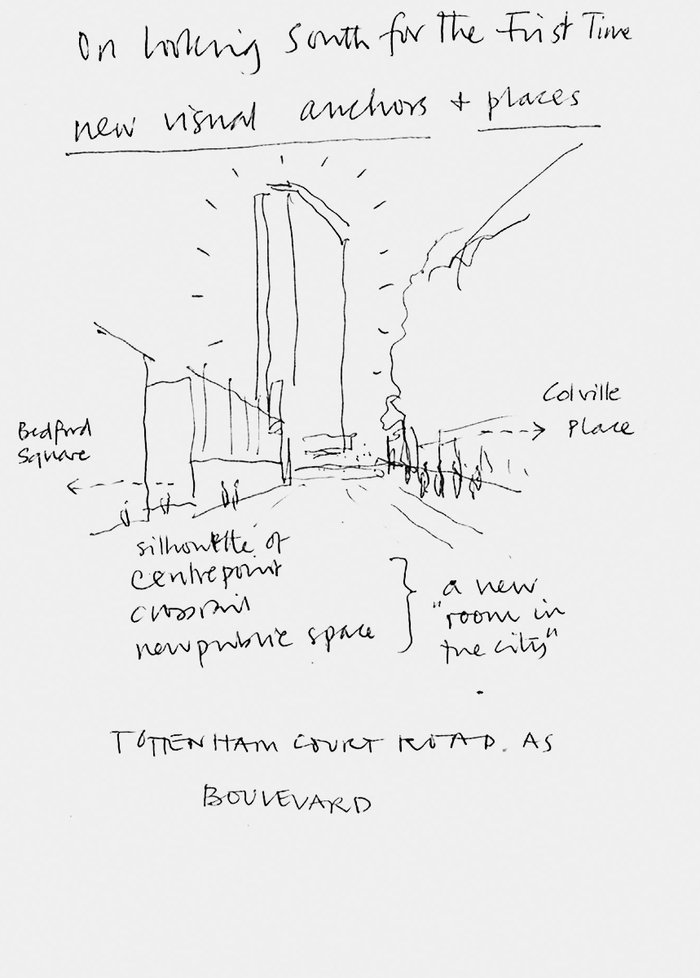 On looking South for the First Time
new visual anchors + places
Colville
Place
Bedford
Square
silhouette of
centrepoint
crossrail
new public space
a new
"room in
the city"
TOTTENHAM COURT ROAD. AS
BOULEVARD